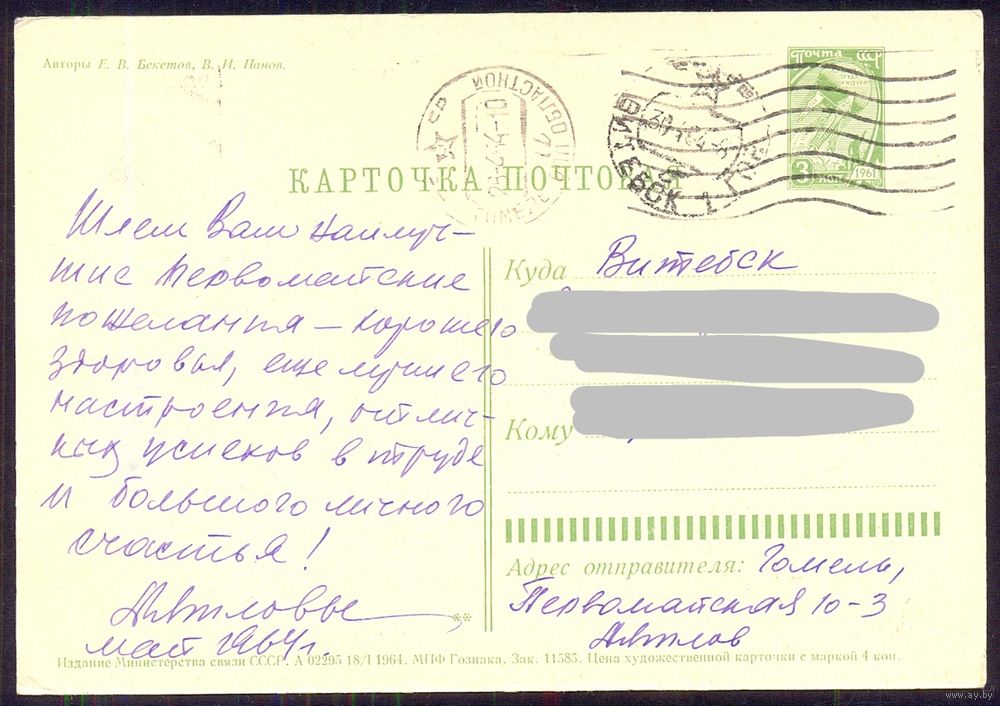 Авторы Е. В. Бекетов, В. И. Панов.
ПОЧТА СССР
3 коп. 1961
ВИТЕБСК 1
ОБЛАСТНОЙ
КАРТОЧКА ПОЧТОВАЯ
Шлем Вам наилуч-
шие Первомайские
пожелания – хорошего
здоровья, еще лучшего
настроения, отлич-
ных успехов в труде
и большого личного
счастья!
май 1964 г.
Куда Витебск
Кому
Адрес отправителя: Гомель,
Первомайская 10-3
Издание Министерства связи СССР. А 02295 18/I 1964. МПФ Гознака, Зак. 11585. Цена художественной карточки с маркой 4 коп.
www.ay.by